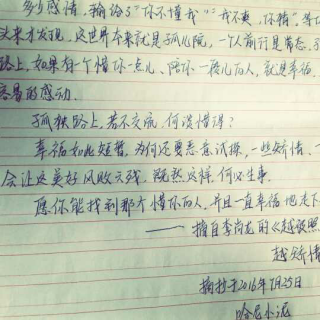 多少感情，输给了“你不懂我”“我不爽，你猜”等
头来才发现，这世界本来就是孤儿院，一个人前行是常态，
路上，如果有一个懂你一点儿、陪你一段儿的人，就是幸福、
容易的感动。
孤独路上，若不交流，何谈懂得？
幸福如此短暂，为何还要恶意试探，一些矫情、
会让这美好风败云残，既然这样，何必生事。
愿你能找到那个懂你的人，并且一直幸福地走下
——摘自李尚龙的《越
越矫情
摘抄于2016年7月25日
哈尼小泥